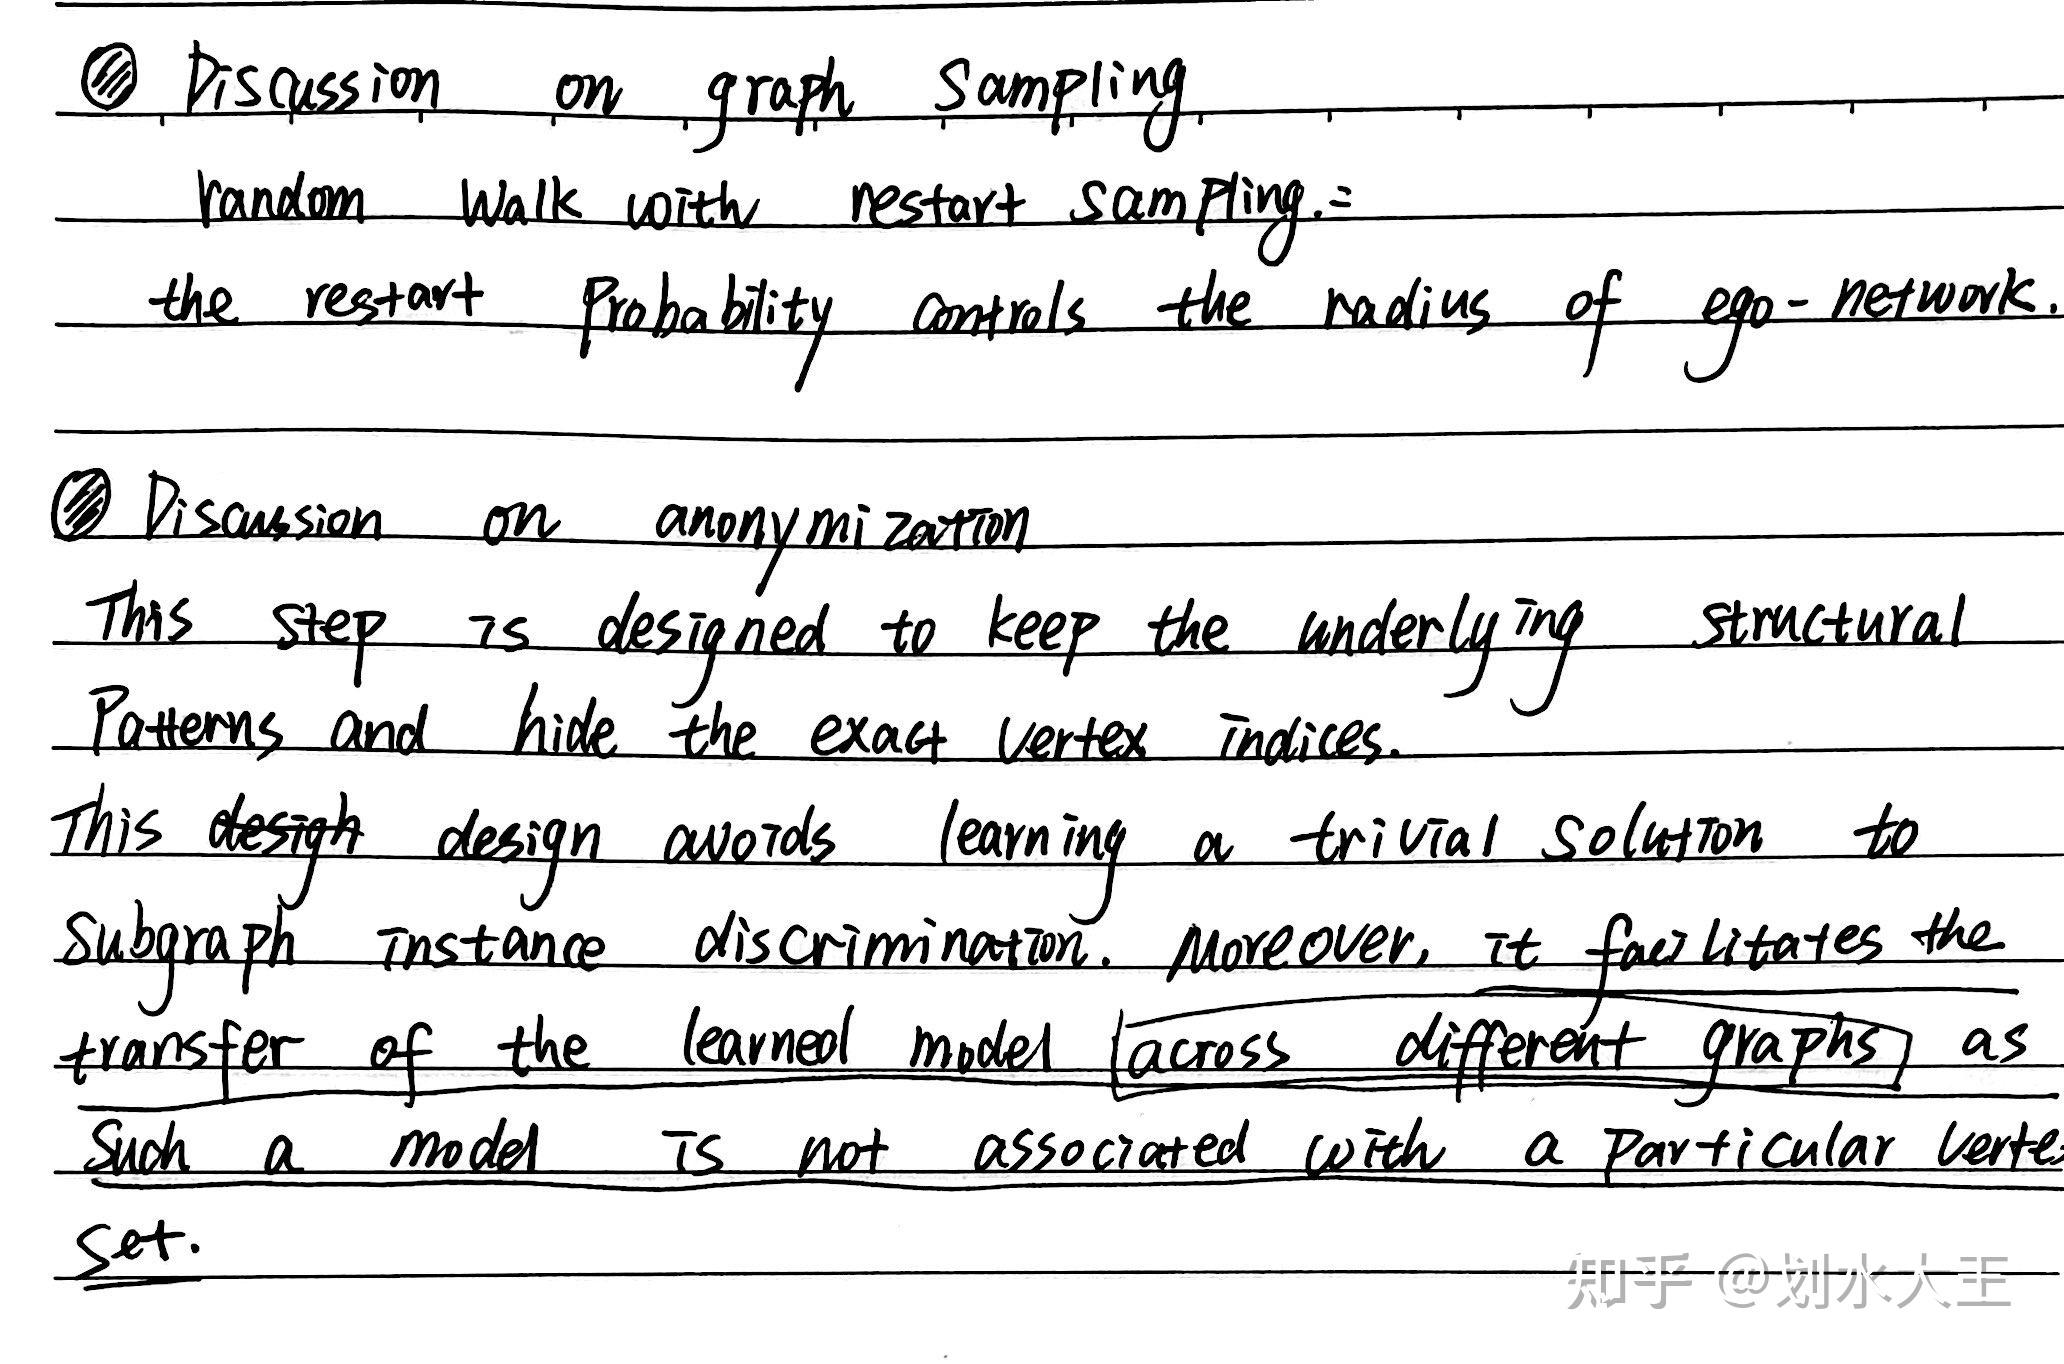 Discussion on graph Sampling
random Walk with restart sampling.=
the restart Probability controls the radius of ego-network.
Discussion on anonymization
This step is designed to keep the underlying structural
Patterns and hide the exact vertex indices.
This desigh design avoids learning a trivial solution to
Subgraph instance discrimination. Moreover, it facilitates the
transfer of the learned model [across different graphs] as
Such a model is not associated with a particular verte
set.
知乎 @划水大王